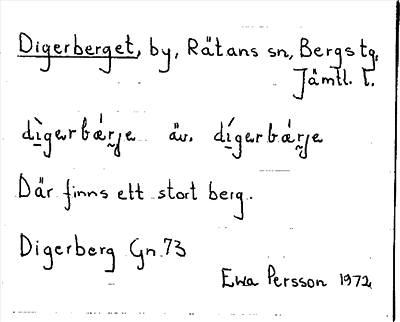 Digerberget, by, Rätans sn, Bergs tg,
Jämtl. l.
dìgerbǽrje äv. dígerbǽrje
Där finns ett stort berg.
Digerberg Gn. 73
Ewa Persson 1972